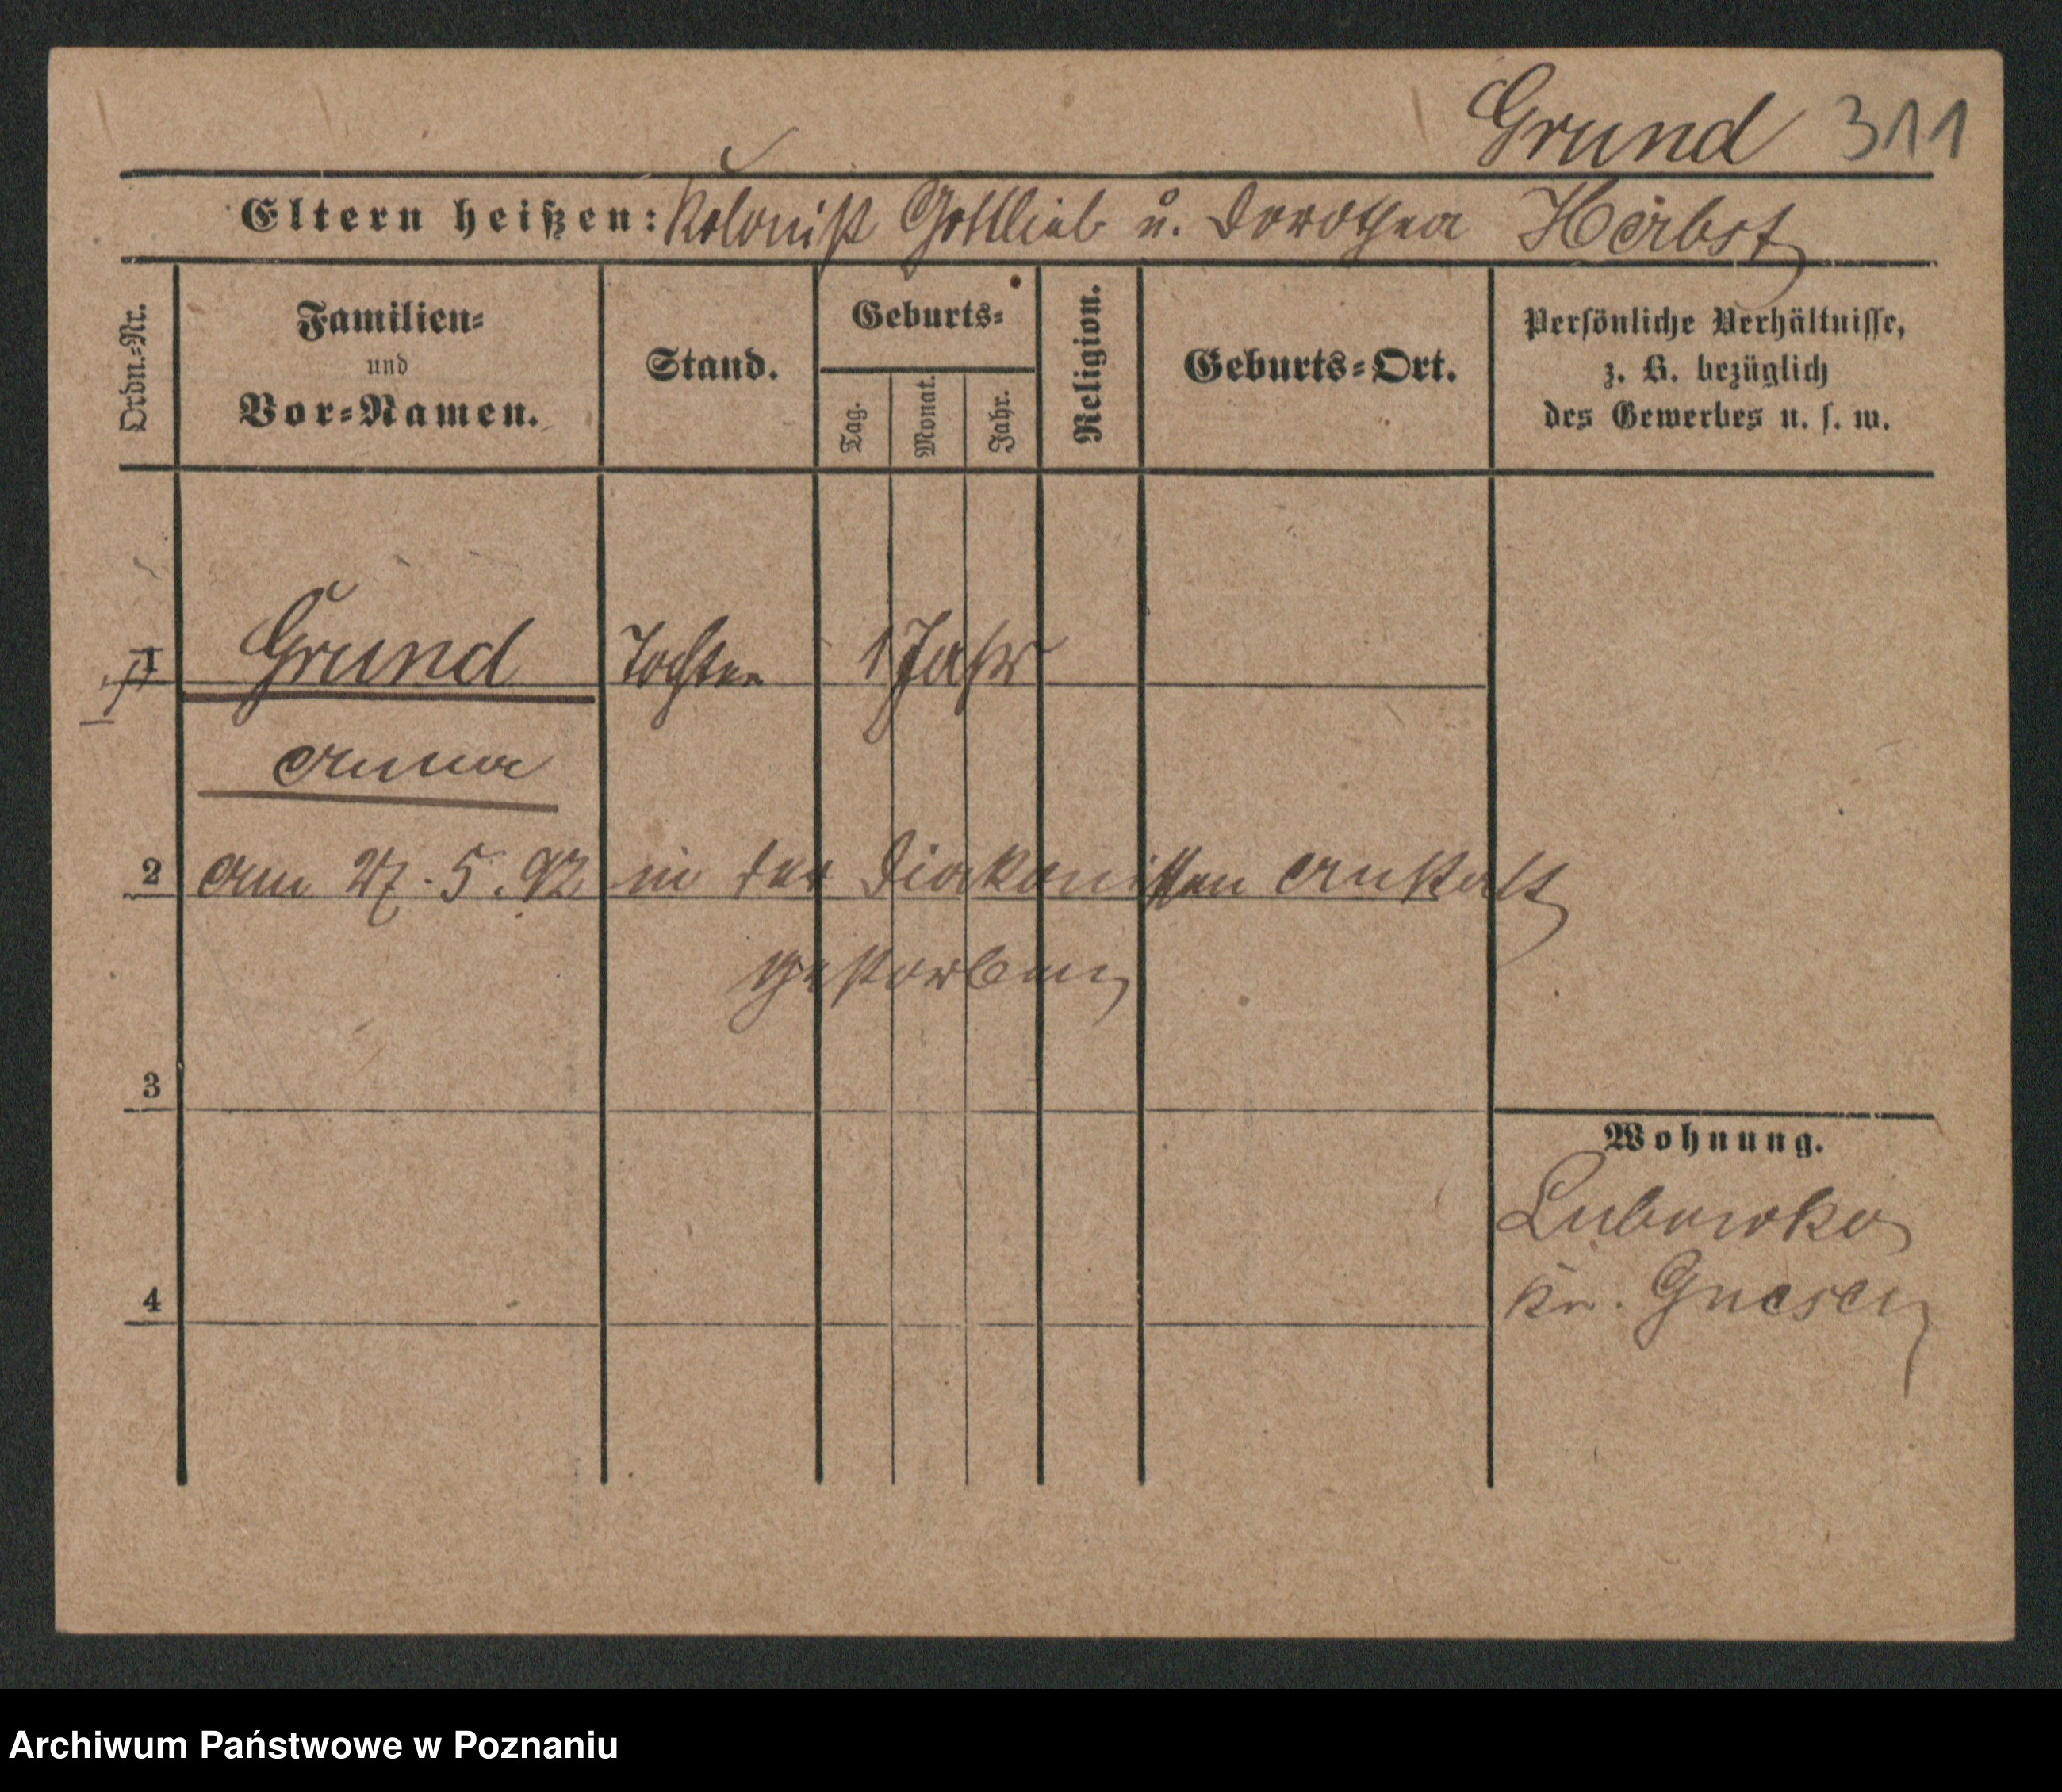 Grund 311
Eltern heißen: Kolonist Gottlieb u. Dorothea Herbst
Ordn.-Nr.
Familien-
und
Vor-Namen.
Stand.
Geburts-
Tag.
Monat.
Jahr.
Religion.
Geburts-Ort.
Persönliche Verhältnisse,
z. B. bezüglich
des Gewerbes u. s. w.
1 Grund Tochter 1 Jahr
Anna
2 am 27.5.92 in der Diakonissen Anstalt
gestorben
3
Wohnung.
Lubowko
4
Kr. Gnesen
Archiwum Państwowe w Poznaniu